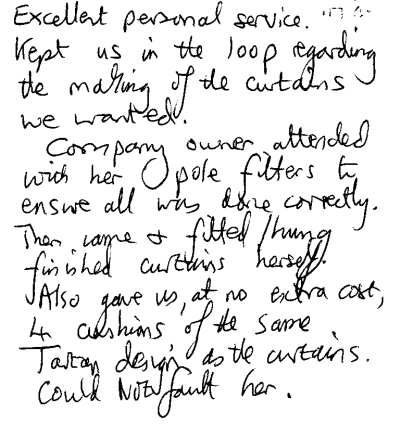 Excellent personal service.
Kept us in the loop regarding
the making of the curtains
we wanted.
Company owner attended
with her pole fitters to
ensure all was done correctly.
Then came & fitted / hung
finished curtains herself.
Also gave us, at no extra cost,
4 cushions of the same
Tartan design as the curtains.
Could not fault her.